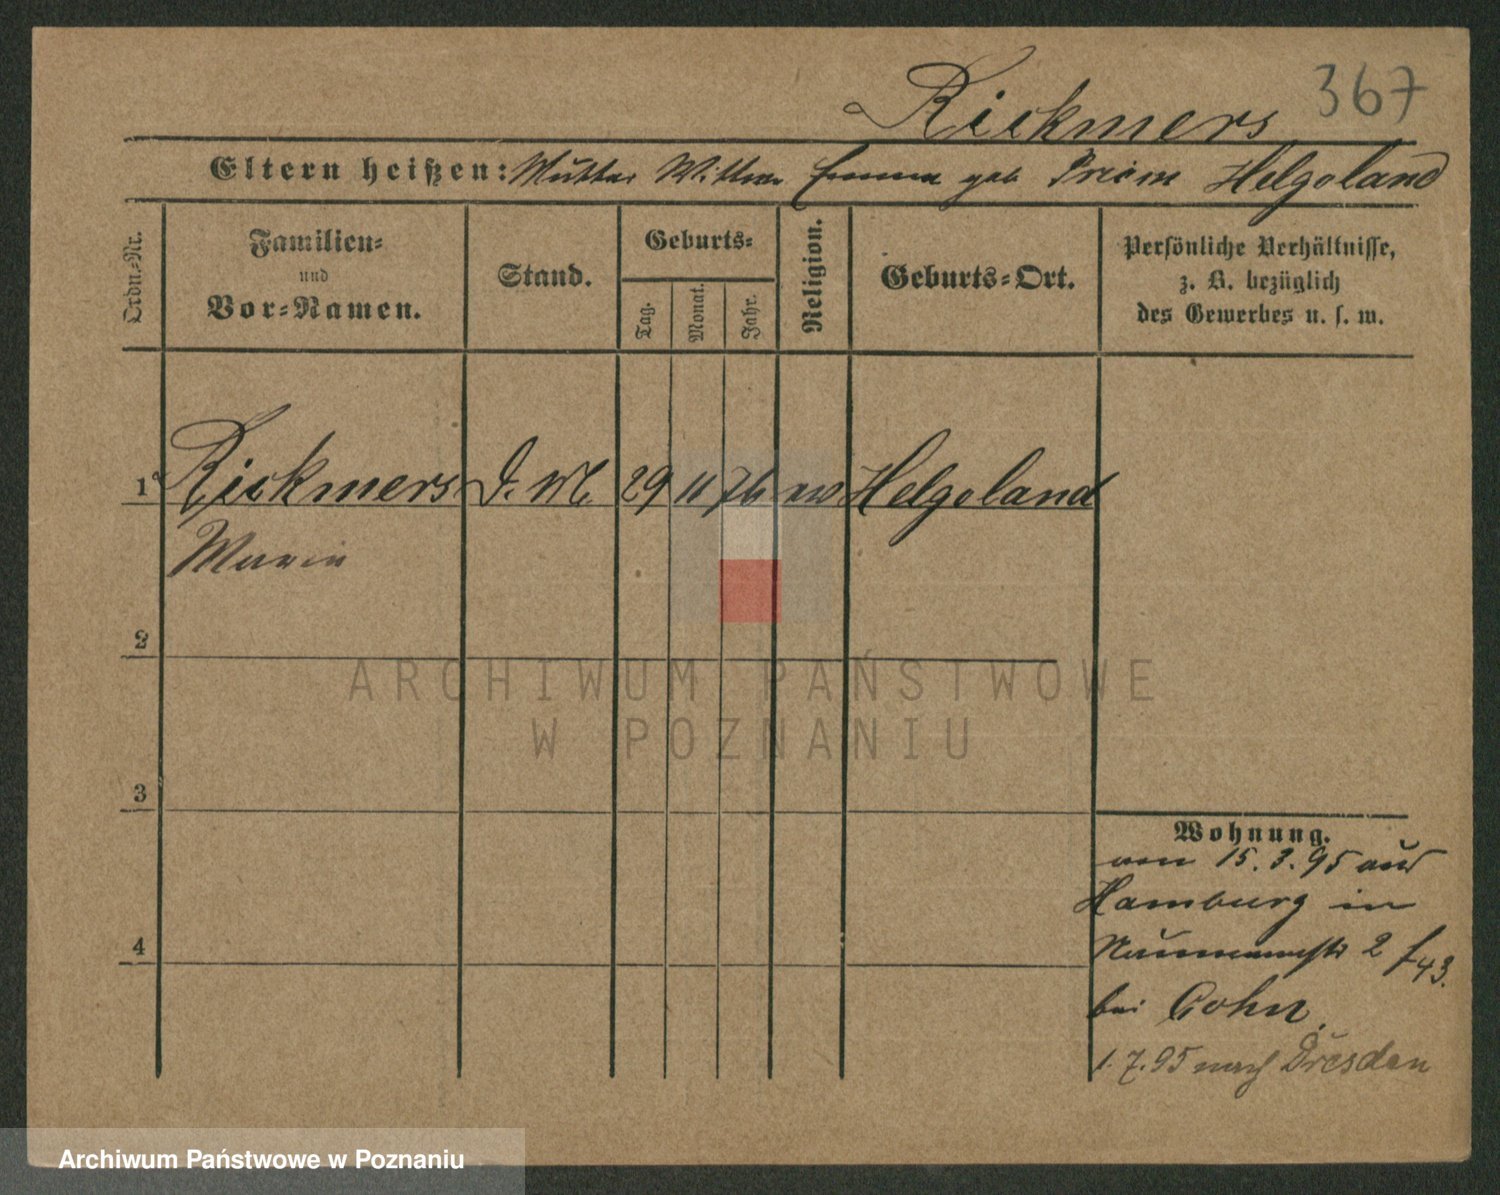 Rickmers 367
Eltern heißen: Mutter Witwe Emma geb Helgoland
Ordn.-Nr.
Familien-
und
Vor-Namen.
Stand.
Geburts-
Tag.
Monat.
Jahr.
Religion.
Geburts-Ort.
Persönliche Verhältnisse,
z. B. bezüglich
des Gewerbes u. s. w.
1 Rickmers D. M. 29 11 76 ev Helgoland
Marie
2
3
4
ARCHIWUM PAŃSTWOWE
W POZNANIU
Wohnung.
von 15. 3. 95 aus
Hamburg in
Naumannstr 2
bei Cohn.
1. 7. 95 nach Dresden
Archiwum Państwowe w Poznaniu